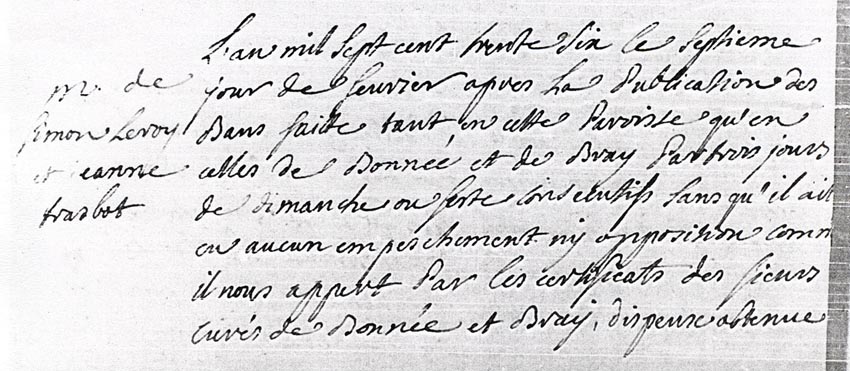 m. de
simon Leroy
et jeanne
trasbot
L'an mil sept cent trente six le septieme
jour de feuvrier apres La Publication des
Bans faitte tant en cette Paroisse qu'en
celles de Bonnée et de Bray Par trois jours
de dimanche ou feste consecutifs sans qu'il ait
eu aucun empeschement ny opposition comm
il nous appert Par les certificats des sieurs
curés de Bonnée et Bray, dispense obtenue